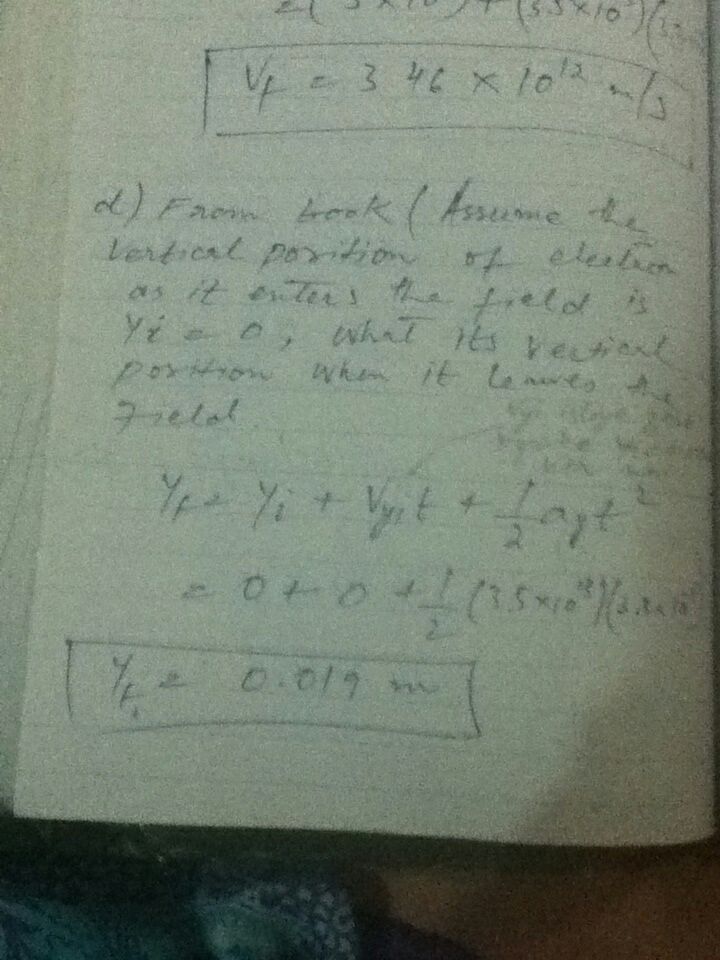 Vf = 3.46 × 10¹² m/s
d) From book (Assume the
vertical position of electron
as it enters the field is
Yi = 0, what its vertical
position when it leaves the
field
Yf = Yi + Vyit + 1/2 ayt²
= 0 + 0 + 1/2 (3.5×10¹³)(
Yf = 0.019 m